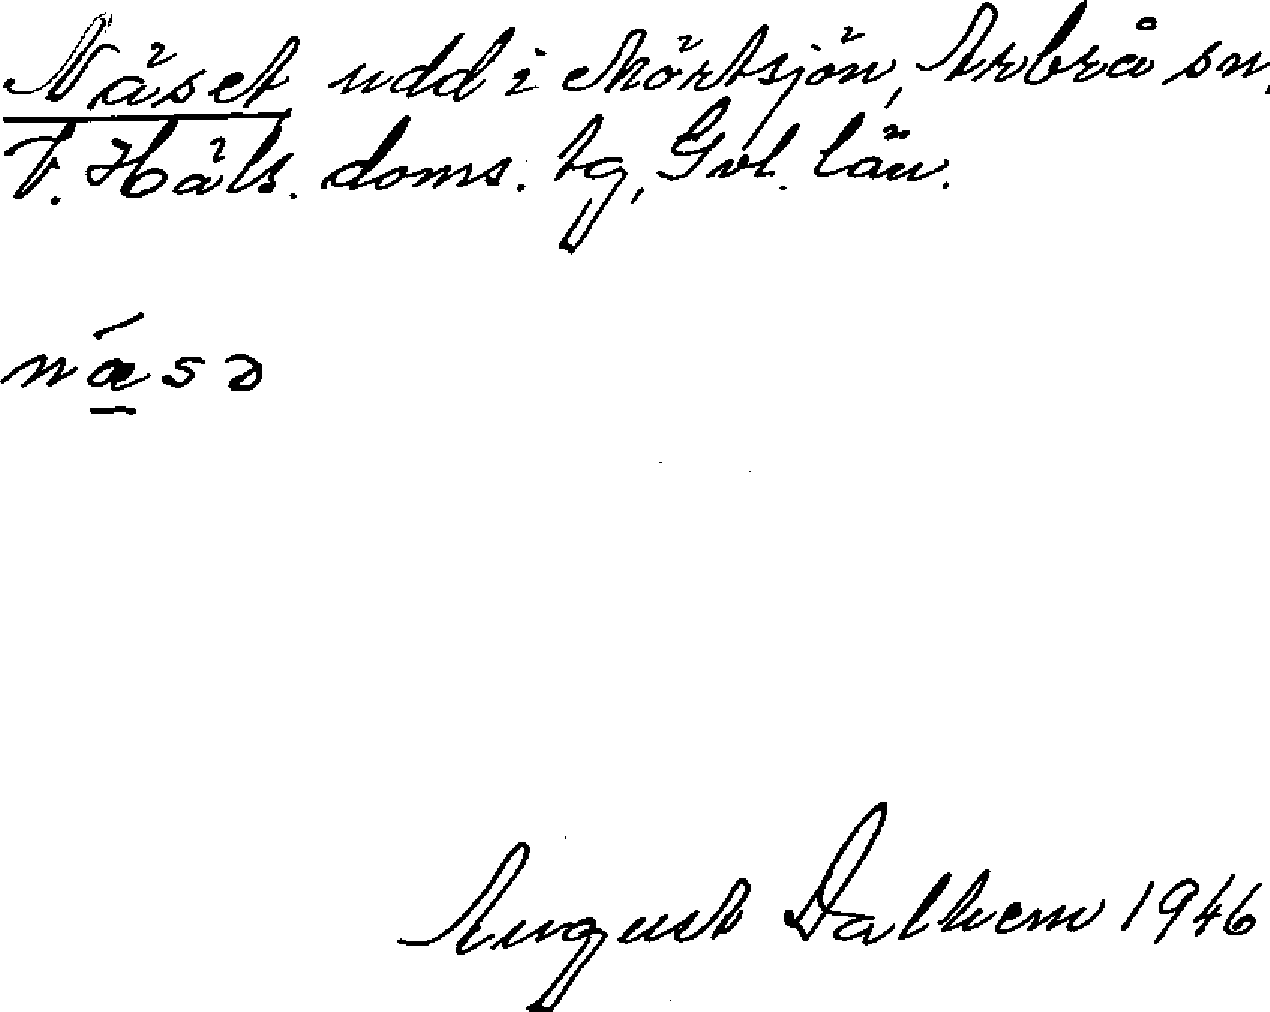 Näset udd i Mörtsjön, Arbrå sn.
V. Häls. doms. tg, Gvl. län.
nǽ̲sə
August Dalhem 1946